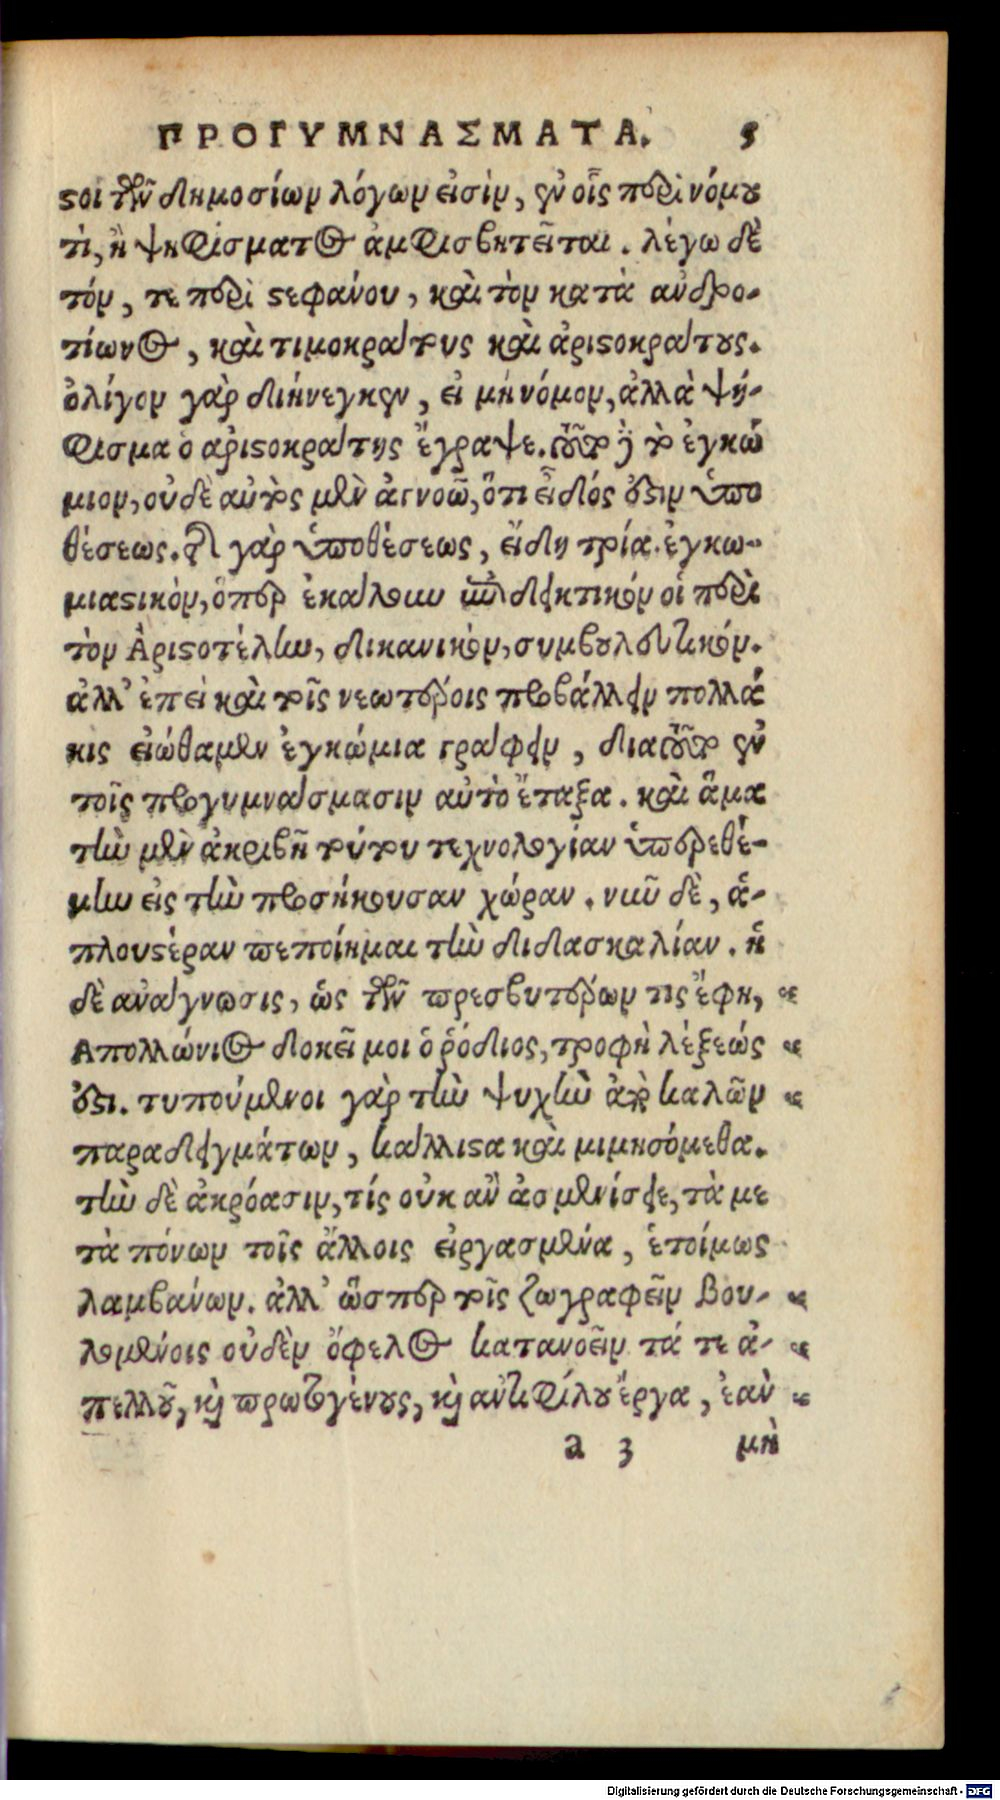 ΠΡΟΓΥΜΝΑΣΜΑΤΑ. 5
ϛοι τῶν δημοσίων λόγων εἰσὶν, ἐν οἷς περὶ νόμου
τι, ἢ ψηφίσματος ἀμφισβητεῖται. λέγω δὲ
τόν, τε περὶ ϛεφάνου, καὶ τὸν κατὰ ἀνδρο-
τίωνος, καὶ τιμοκράτους καὶ ἀριϛοκράτους.
ὀλίγον γὰρ διήνεγκεν, εἰ μὴ νόμον, ἀλλὰ ψή-
φισμα ὁ ἀριϛοκράτης ἔγραψε. ταῦτα τὸ ἐγκώ
μιον, οὐδὲ αὐτὸς μὲν ἀγνοῶ, ὅτι εἶδός ἐϛιν ὑπο
θέσεως. ἔϛι γὰρ ὑποθέσεως, εἴδη τρία. ἐγκω-
μιαϛικὸν, ὅπερ ἐκάλουν ἐπιδεικτικόν οἱ περὶ
τὸν Ἀριϛοτέλην, δικανικὸν, συμβουλευτικόν.
ἀλλ' ἐπεὶ καὶ τοῖς νεωτέροις προβάλλειν πολλά
κις εἰώθαμεν ἐγκώμια γράφειν, διὰ τοῦτο ἐν
τοῖς προγυμνάσμασιν αὐτὸ ἔταξα. καὶ ἅμα
τὴν μὲν ἀκριβῆ τούτου τεχνολογίαν ὑπερεθέ-
μην εἰς τὴν προσήκουσαν χώραν. νῦν δὲ, ἁ-
πλουϛέραν πεποίημαι τὴν διδασκαλίαν. ἡ
δὲ ἀνάγνωσις, ὡς τῶν πρεσβυτέρων τις ἔφη,
Ἀπολλώνιος δοκεῖ μοι ὁ ῥόδιος, τροφὴ λέξεώς
ἐϛι. τυπούμενοι γὰρ τὴν ψυχὴν ἀπὸ καλῶν
παραδειγμάτων, κάλλιϛα καὶ μιμησόμεθα.
τὴν δὲ ἀκρόασιν, τίς οὐκ ἂν ἀσμενίσειε, τὰ με
τὰ πόνων τοῖς ἄλλοις εἰργασμένα, ἑτοίμως
λαμβάνων. ἀλλ' ὥσπερ τοῖς ζωγραφεῖν βου-
λομένοις οὐδὲν ὄφελος κατανοεῖν τά τε ἀ-
πελλοῦ, καὶ πρωτογένους, καὶ ἀντιφίλου ἔργα, ἐὰν
a 3 μὴ
Digitalisierung gefördert durch die Deutsche Forschungsgemeinschaft - DFG